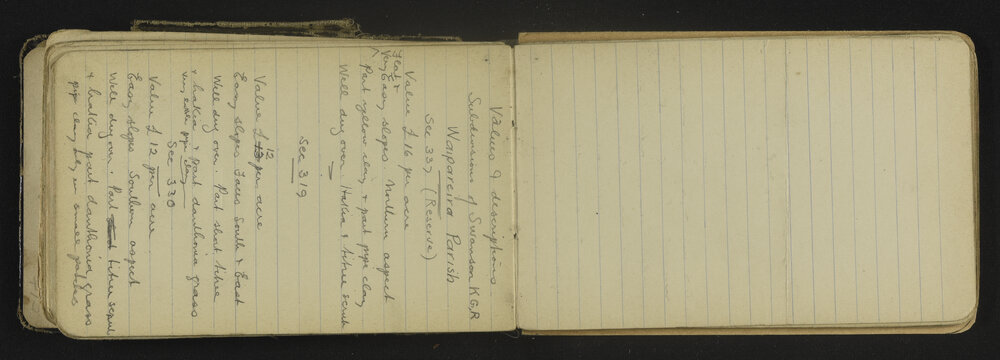 Values & descriptions
Subdivisions of Swanson K.G.R
Waipareira Parish
Sec 33, (Reserve)
Value £16 per acre
Flat &
Very Easy slopes Northern aspect
Part yellow clay, & part pipe clay
Well dug over. Hakia & titree scrub
Sec 319
12
Value £ per acre
Easy slopes faces South & East
Well dug over. Part short titree
& hakia & part danthonia grass
very little pipe clay
Sec 330
Value £12 per acre.
Easy slopes Southern aspect
Well dug over. Part titree scrub
& hakia part danthonia grass
pipe clay only in small patches